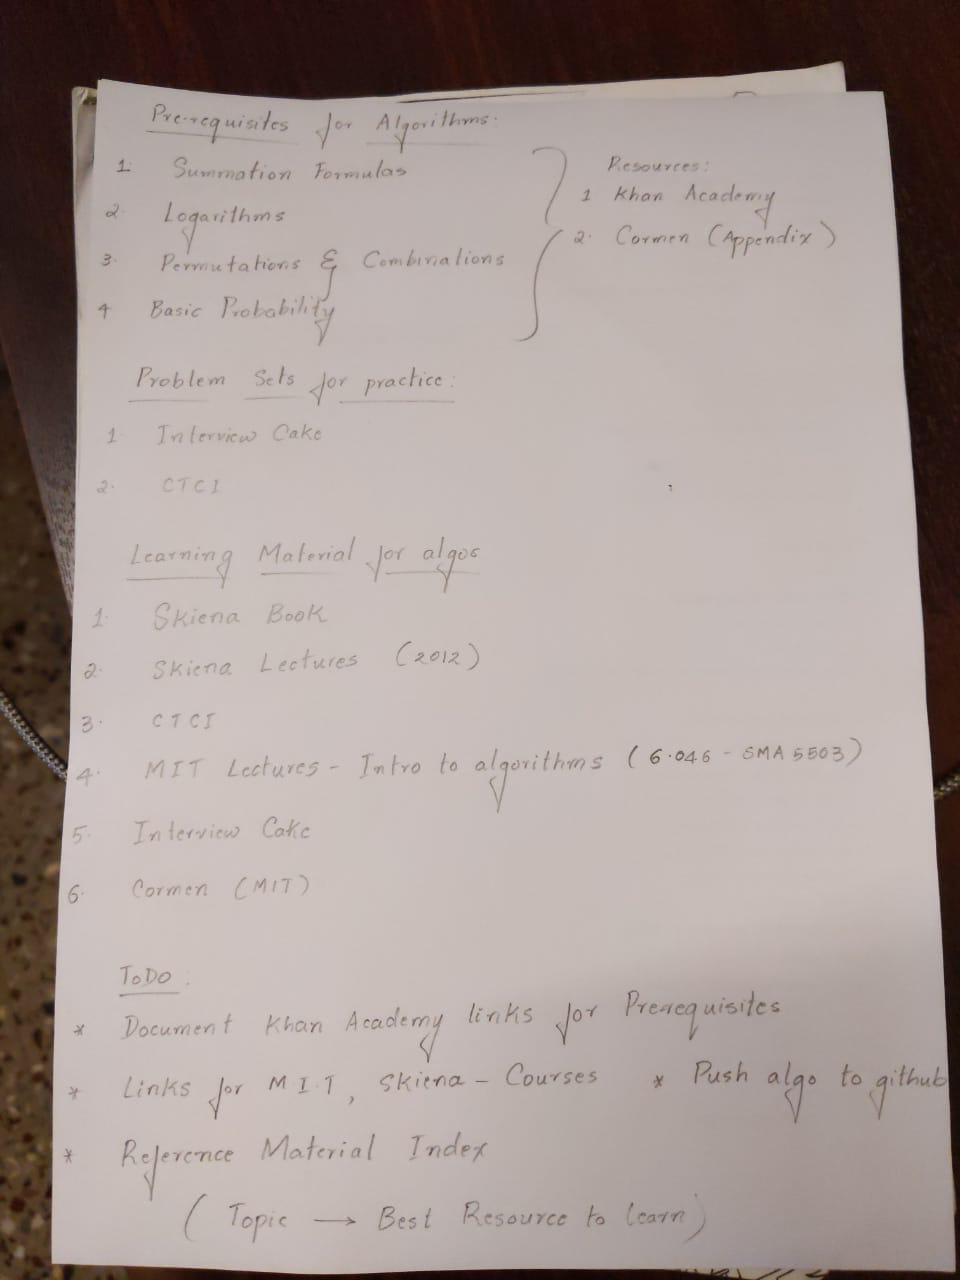 Pre-requisites for Algorithms:
1. Summation Formulas
2. Logarithms
3. Permutations & Combinations
4 Basic Probability
Resources:
1 Khan Academy
2. Cormen (Appendix)
Problem Sets for practice:
1. Interview Cake
2. CTCI
Learning Material for algos
1. Skiena Book
2. Skiena Lectures (2012)
3. CTCI
4. MIT Lectures - Intro to algorithms (6.046 - SMA 5503)
5. Interview Cake
6. Cormen (MIT)
ToDo:
* Document Khan Academy links for Prerequisites
* Links for M.I.T, Skiena - Courses * Push algo to github
* Reference Material Index
(Topic → Best Resource to learn)